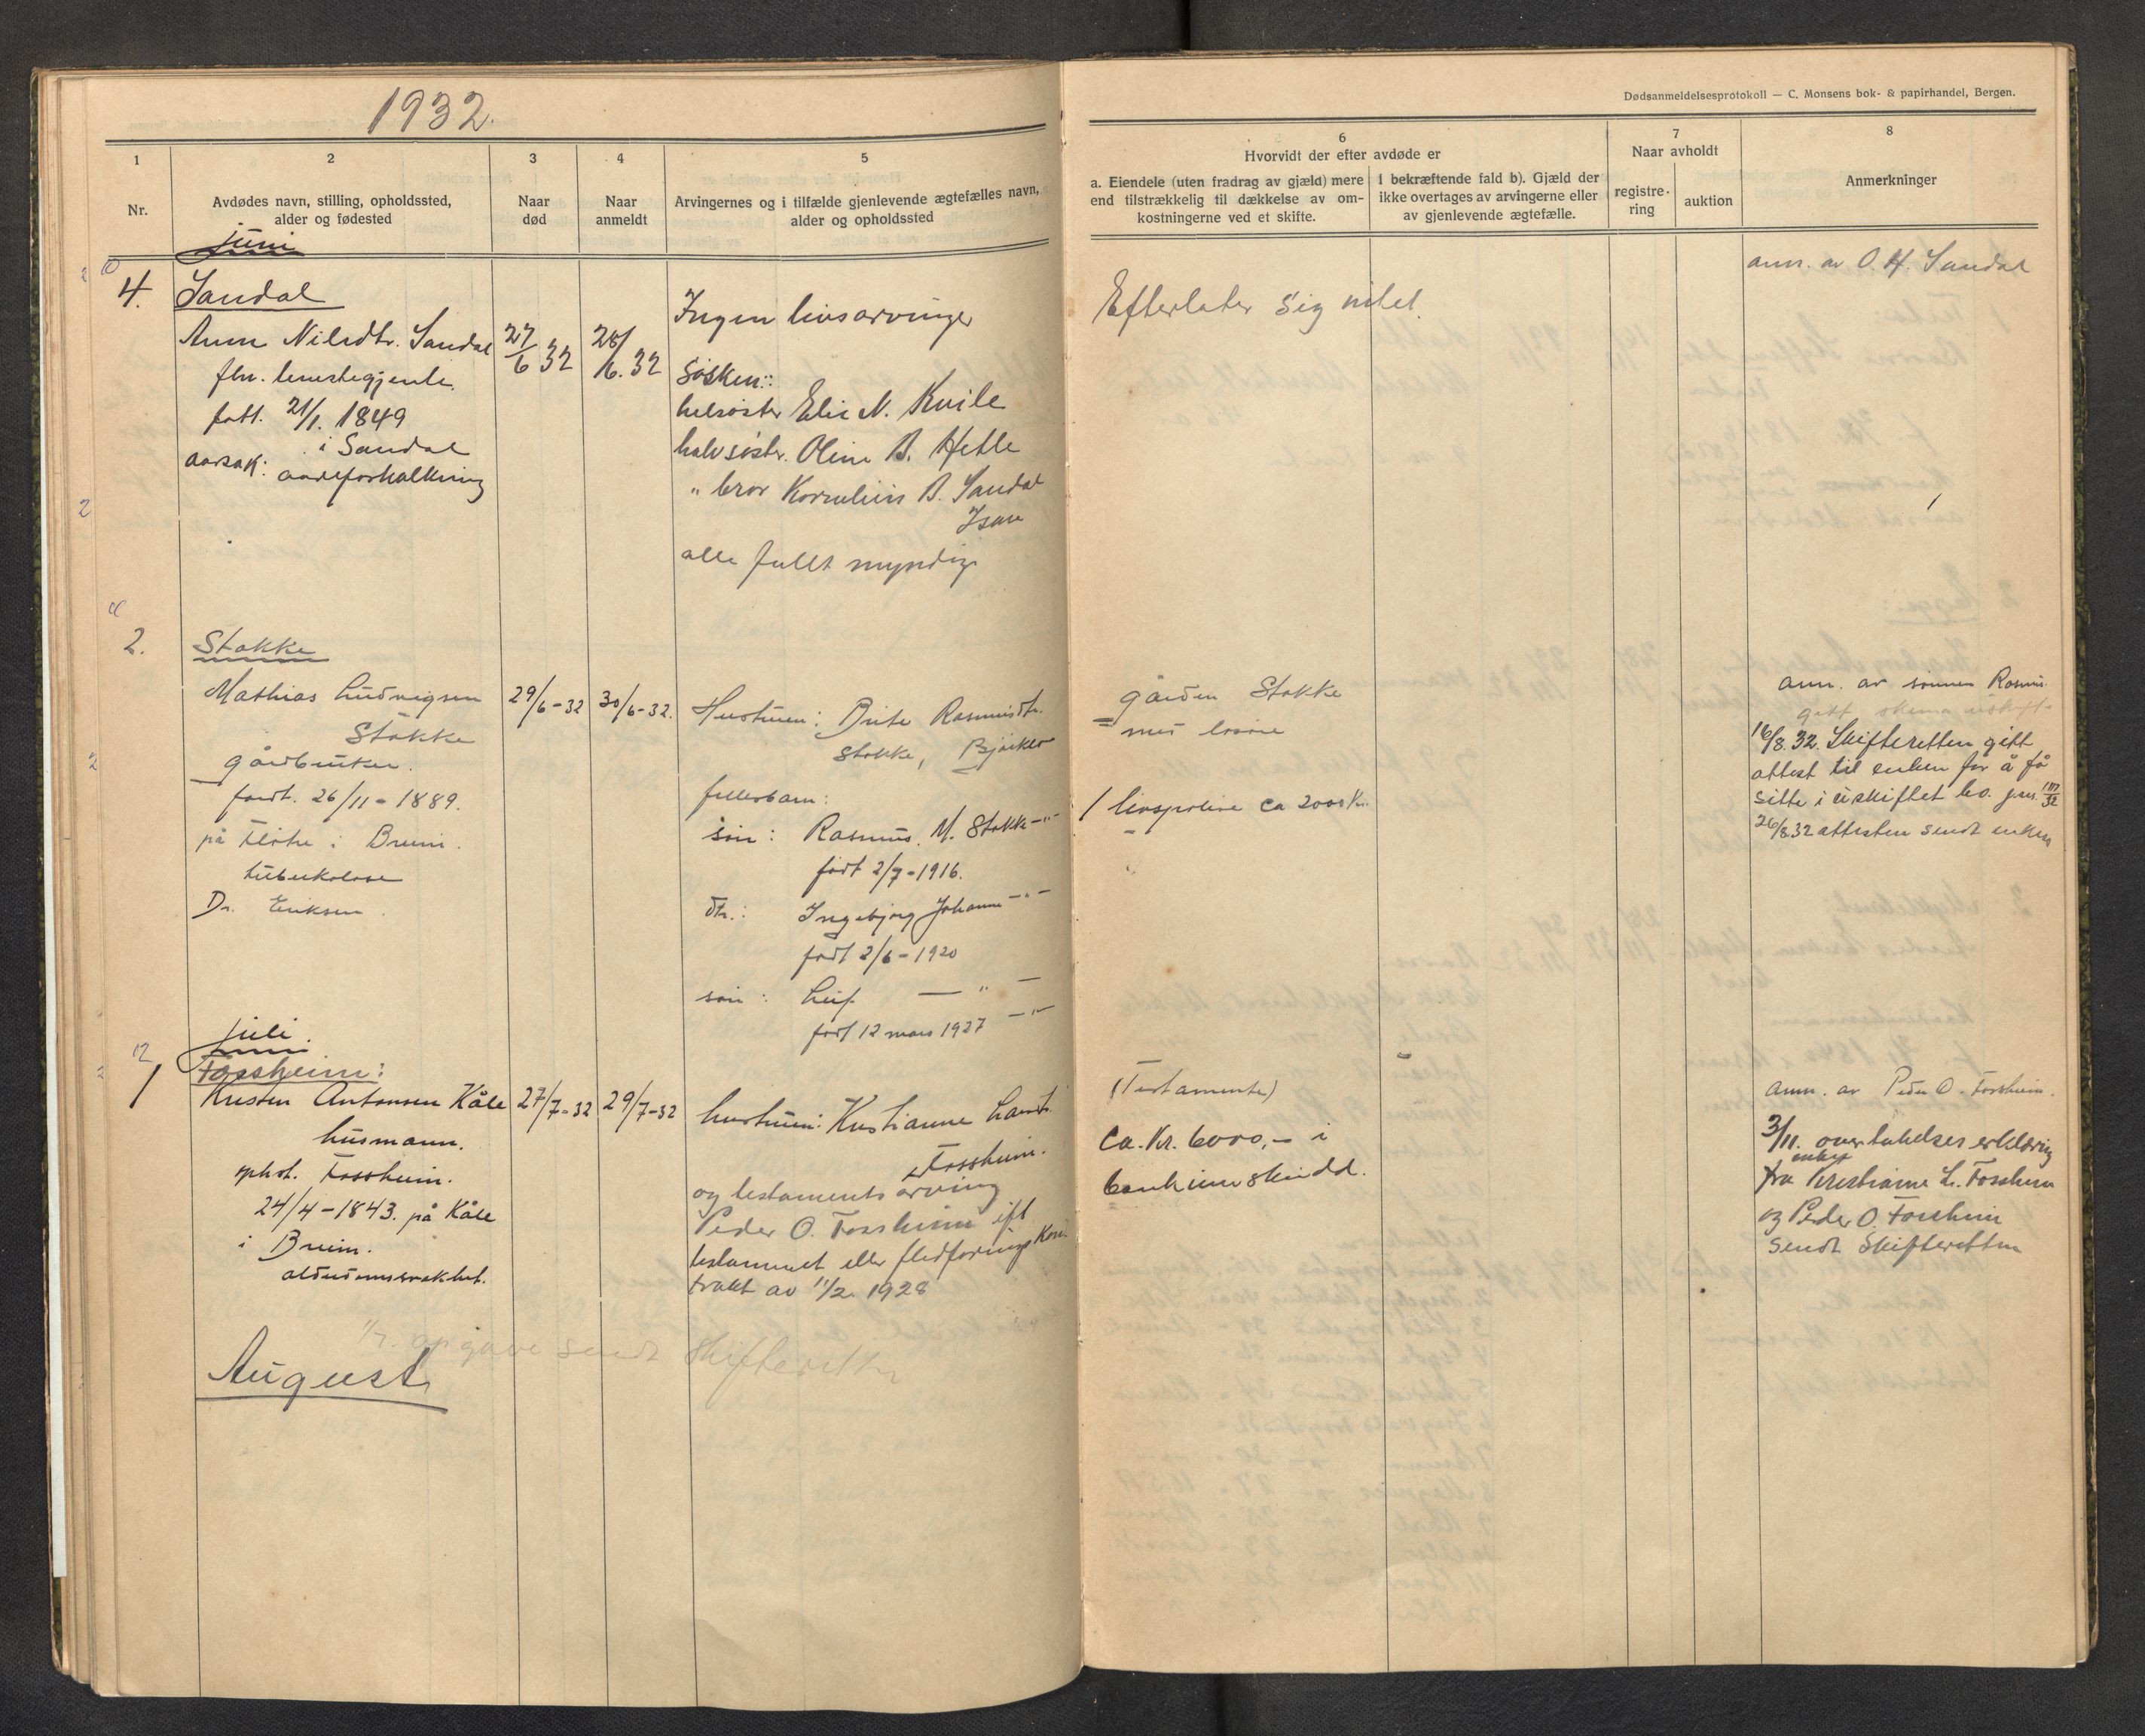 1932.
Dødsanmeldelsesprotokoll — C. Monsens bok- & papirhandel, Bergen.
1
2
3
4
5
6
7
8
Nr.
Avdødes navn, stilling, opholdssted,
alder og fødested
Naar
død
Naar
anmeldt
Arvingernes og i tilfælde gjenlevende ægtefælles navn,
alder og opholdssted
Hvorvidt der efter avdøde er
a. Eiendele (uten fradrag av gjæld) mere
end tilstrækkelig til dækkelse av om-
kostningerne ved et skifte.
I bekræftende fald b). Gjæld der
ikke overtages av arvingerne eller
av gjenlevende ægtefælle.
Naar avholdt
registre-
ring
auktion
Anmerkninger
juni
4.
Sandal
Anne Nilsdtr. Sandal
fhv. tenestegjente
født. 21/1. 1849
i Sandal
aarsak: aareforkalkning
27/6 32
28/6. 32
Ingen livsarvinger
søsken:
helsøster Elis N. Kvile
halvsøster. Oline B. Hetle
" bror Kornelius B. Sandal
alle fullt myndig
Efterlater sig intet.
anm. av O. H. Sandal
2.
Stokke
Mathias Ludvigsen
Stokke
gårdbruker.
født. 26/11 - 1889.
på Fløtre i Breim.
tuberkolose
Dr. Eriksen
29/6-32
30/6-32.
Hustruen: Brite Rasmusdtr.
Stokke,
fellesbarn:
søn: Rasmus M. Stokke —"—
født 2/7-1916.
dtr.: Ingebjørg Johanne —"—
født 2/6-1920
søn: Leif — " —
født 12 mars 1927 —"—
gården Stokke
med løsøre
1 livspolise ca 2000 Kr.
anm. av sønnen Rasmus
gitt skema uskift.
16/8. 32. Skifteretten gitt
attest til enken for å få
sitte i uskiftet bo.
26/8 32 attesten sendt enken
juli
1
Fossheim:
Kristen Antonsen Kåle
husmann.
opholdst. Fossheim.
24/4-1843. på Kåle
i Breim.
alderdomssvakhet.
27/7-32
29/7-32
hustruen: Kristianne Larsdtr.
Fossheim.
og testamentsarving
Peder O. Fossheim ifl
testamnet eller fledføringskon-
trakt av 11/2 1928
(Testamente)
Ca. Kr. 6000,- i
bankinnskudd.
anm. av Peder O. Fossheim.
3/11. overtakelseserklæring
fra enken Kristianne L. Fossheim
og Peder O. Fossheim
sendt Skifteretten
opgave sendt skifteretten
August